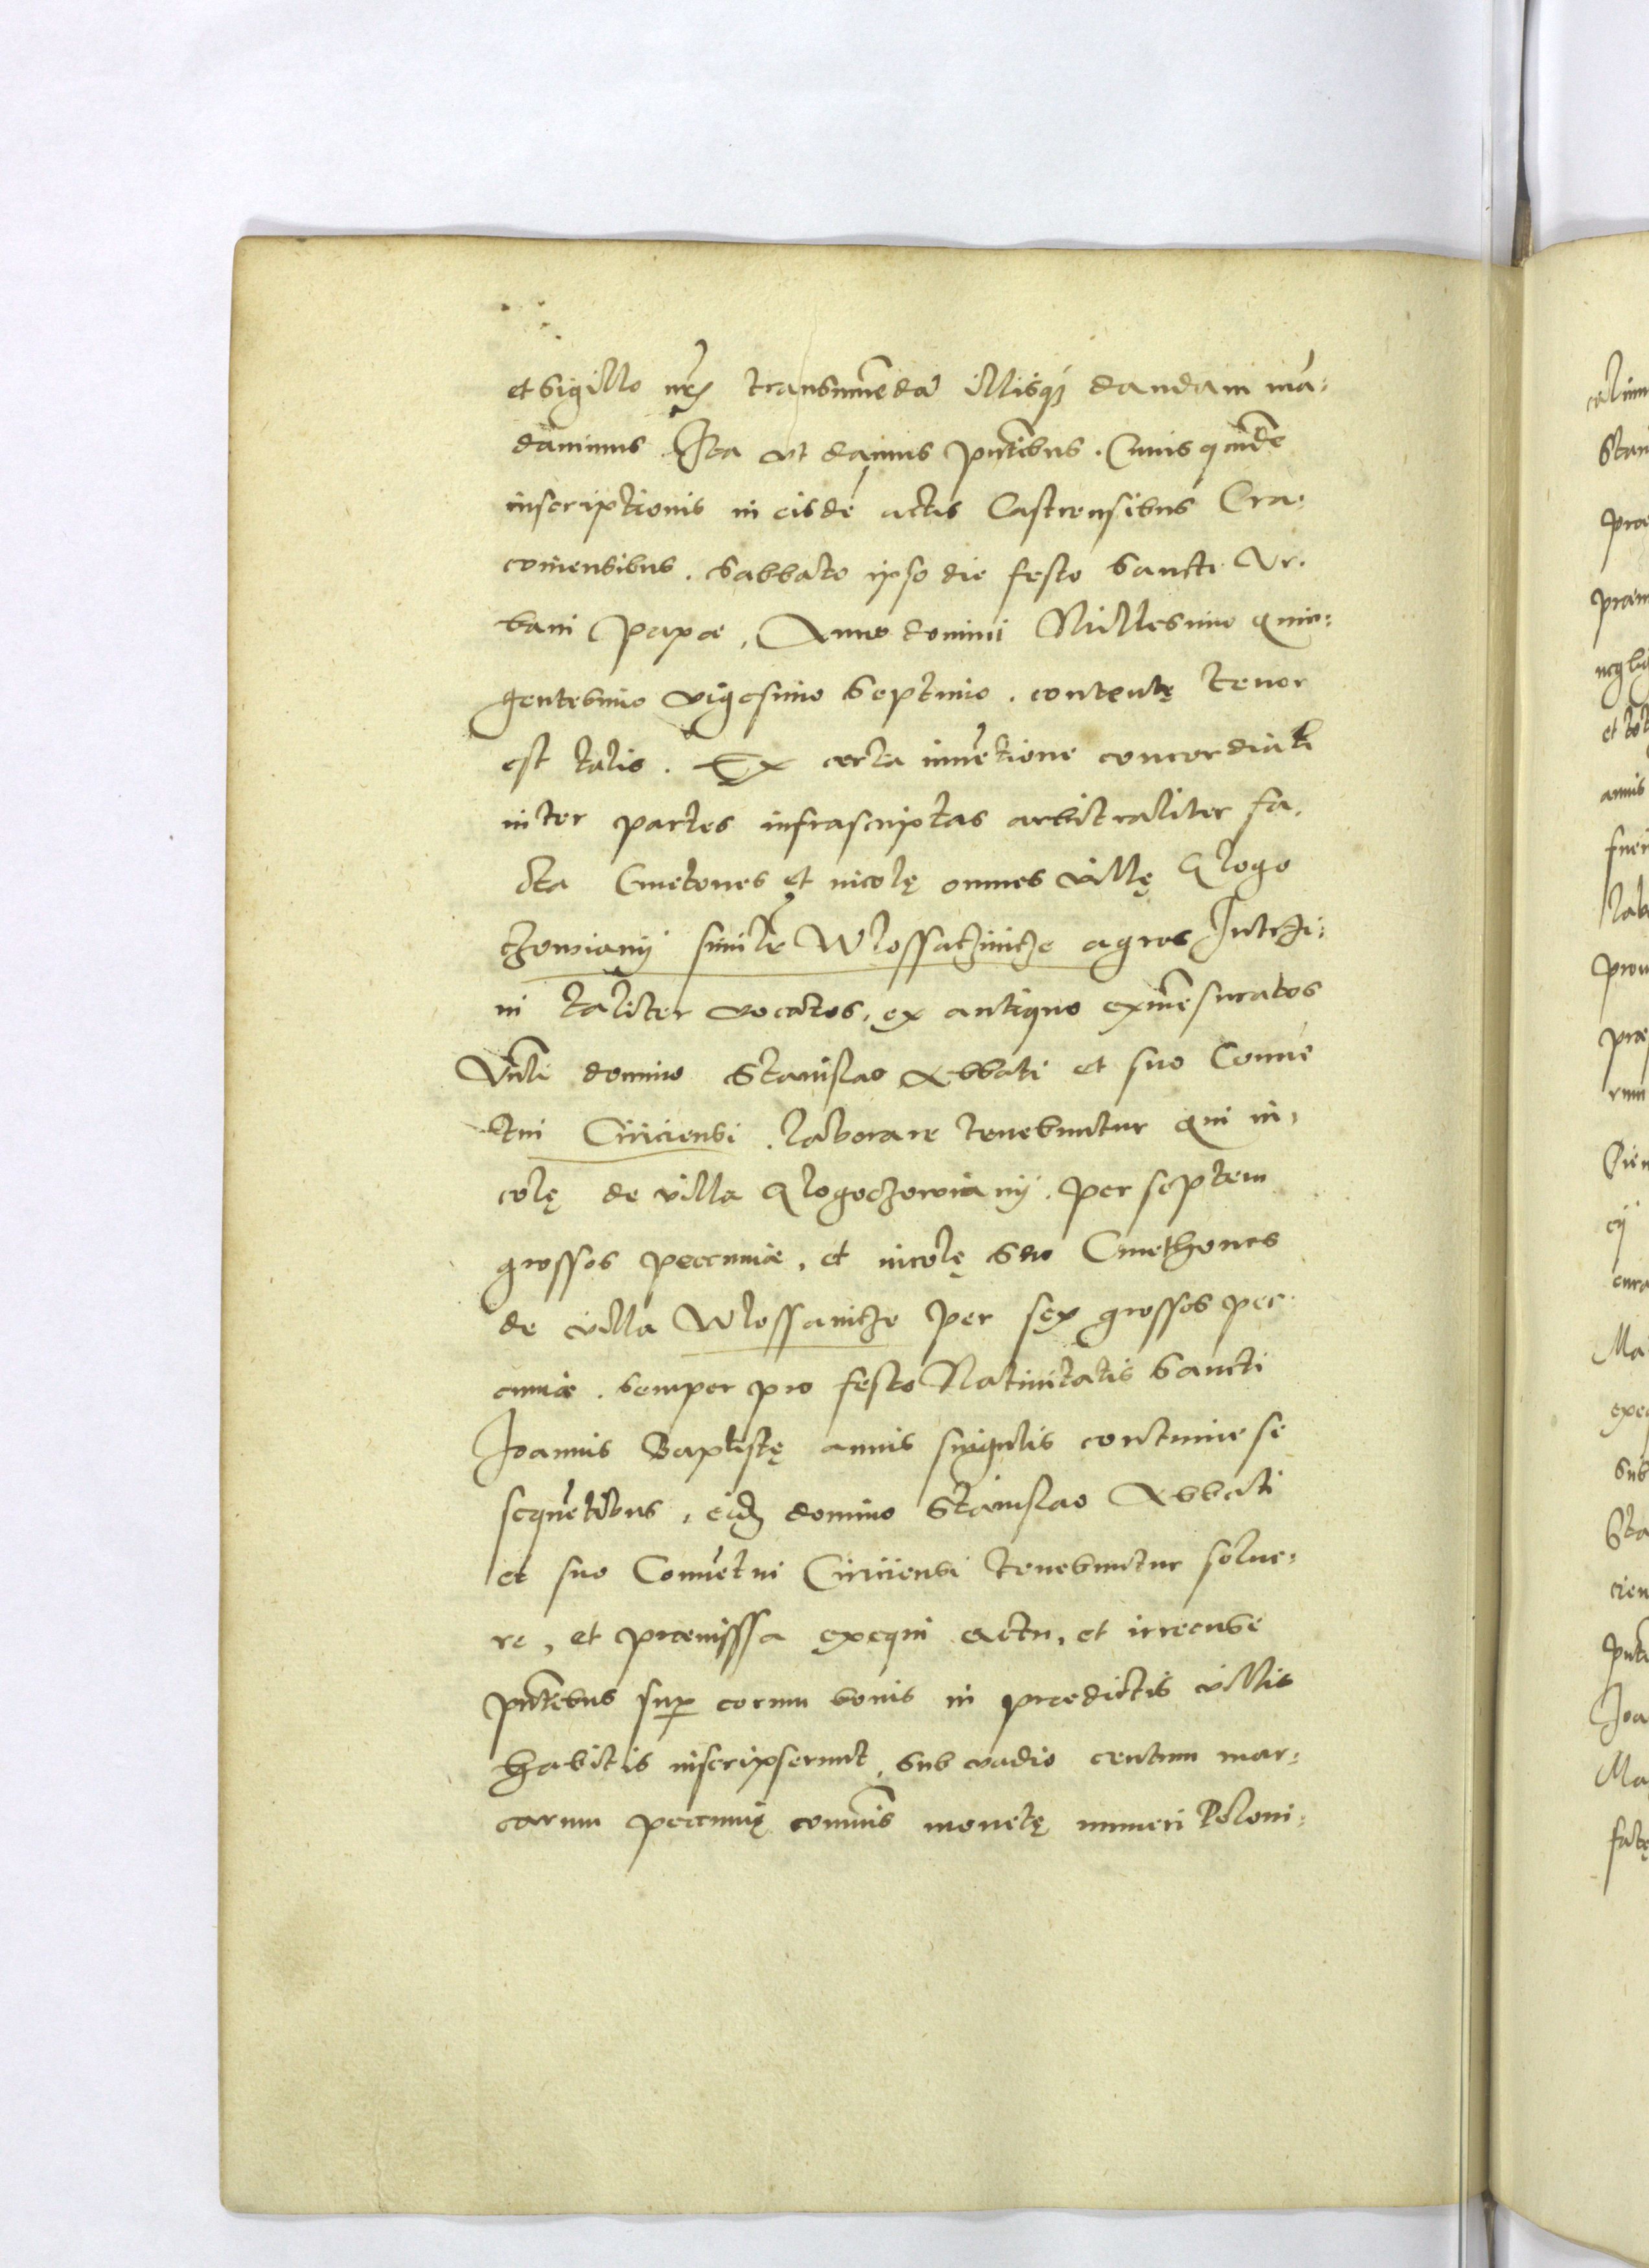 et sigillo nr̃o transmittendã illisq₃ dandam mã=
damus. Ita ut damus pñtibus. Cuius quidẽ
inscriptionis in eisdẽ actis Castrensibus Cra=
couiensibus. Sabbato ipso die festo Sancti Vr=
bani Papæ, Anno domini Millesimo quin=
gentesimo vigesimo Septimo. contentę tenor
est talis. Ex certa inuẽtione concordiali
inter partes infrascriptas arbitraliter fa=
cta Cmetones et incolę omnes villę Glogo
czowiany similr̃ Wlossaczinicze agros
in taliter vocatos, ex antiquo exmẽsuratos
Vñli domino Stanislao Abbati et suo Conuẽ
tui Ciriciensi. laborare tenebuntur qui in=
colę de villa Glogoczowiany. per septem
grossos pecuniæ, et incolę seu Cmethones
de villa Wlossanicze per sex grossos pec
cuniæ. semper pro festo Natiuitatis Sancti
Joannis Baptistę annis singulis continue se
sequẽtibus, eidẽ domino Stanislao Abbati
et suo Conuẽtui Ciriciensi tenebuntur solue=
re, et præmissa exequi actu, et irrecusẽ
pñtibus sup eorum bonis in prædictis villis
habitis inscripserunt, sub vadio centum mar=
carum pecunię comũis monetę numeri Poloni=